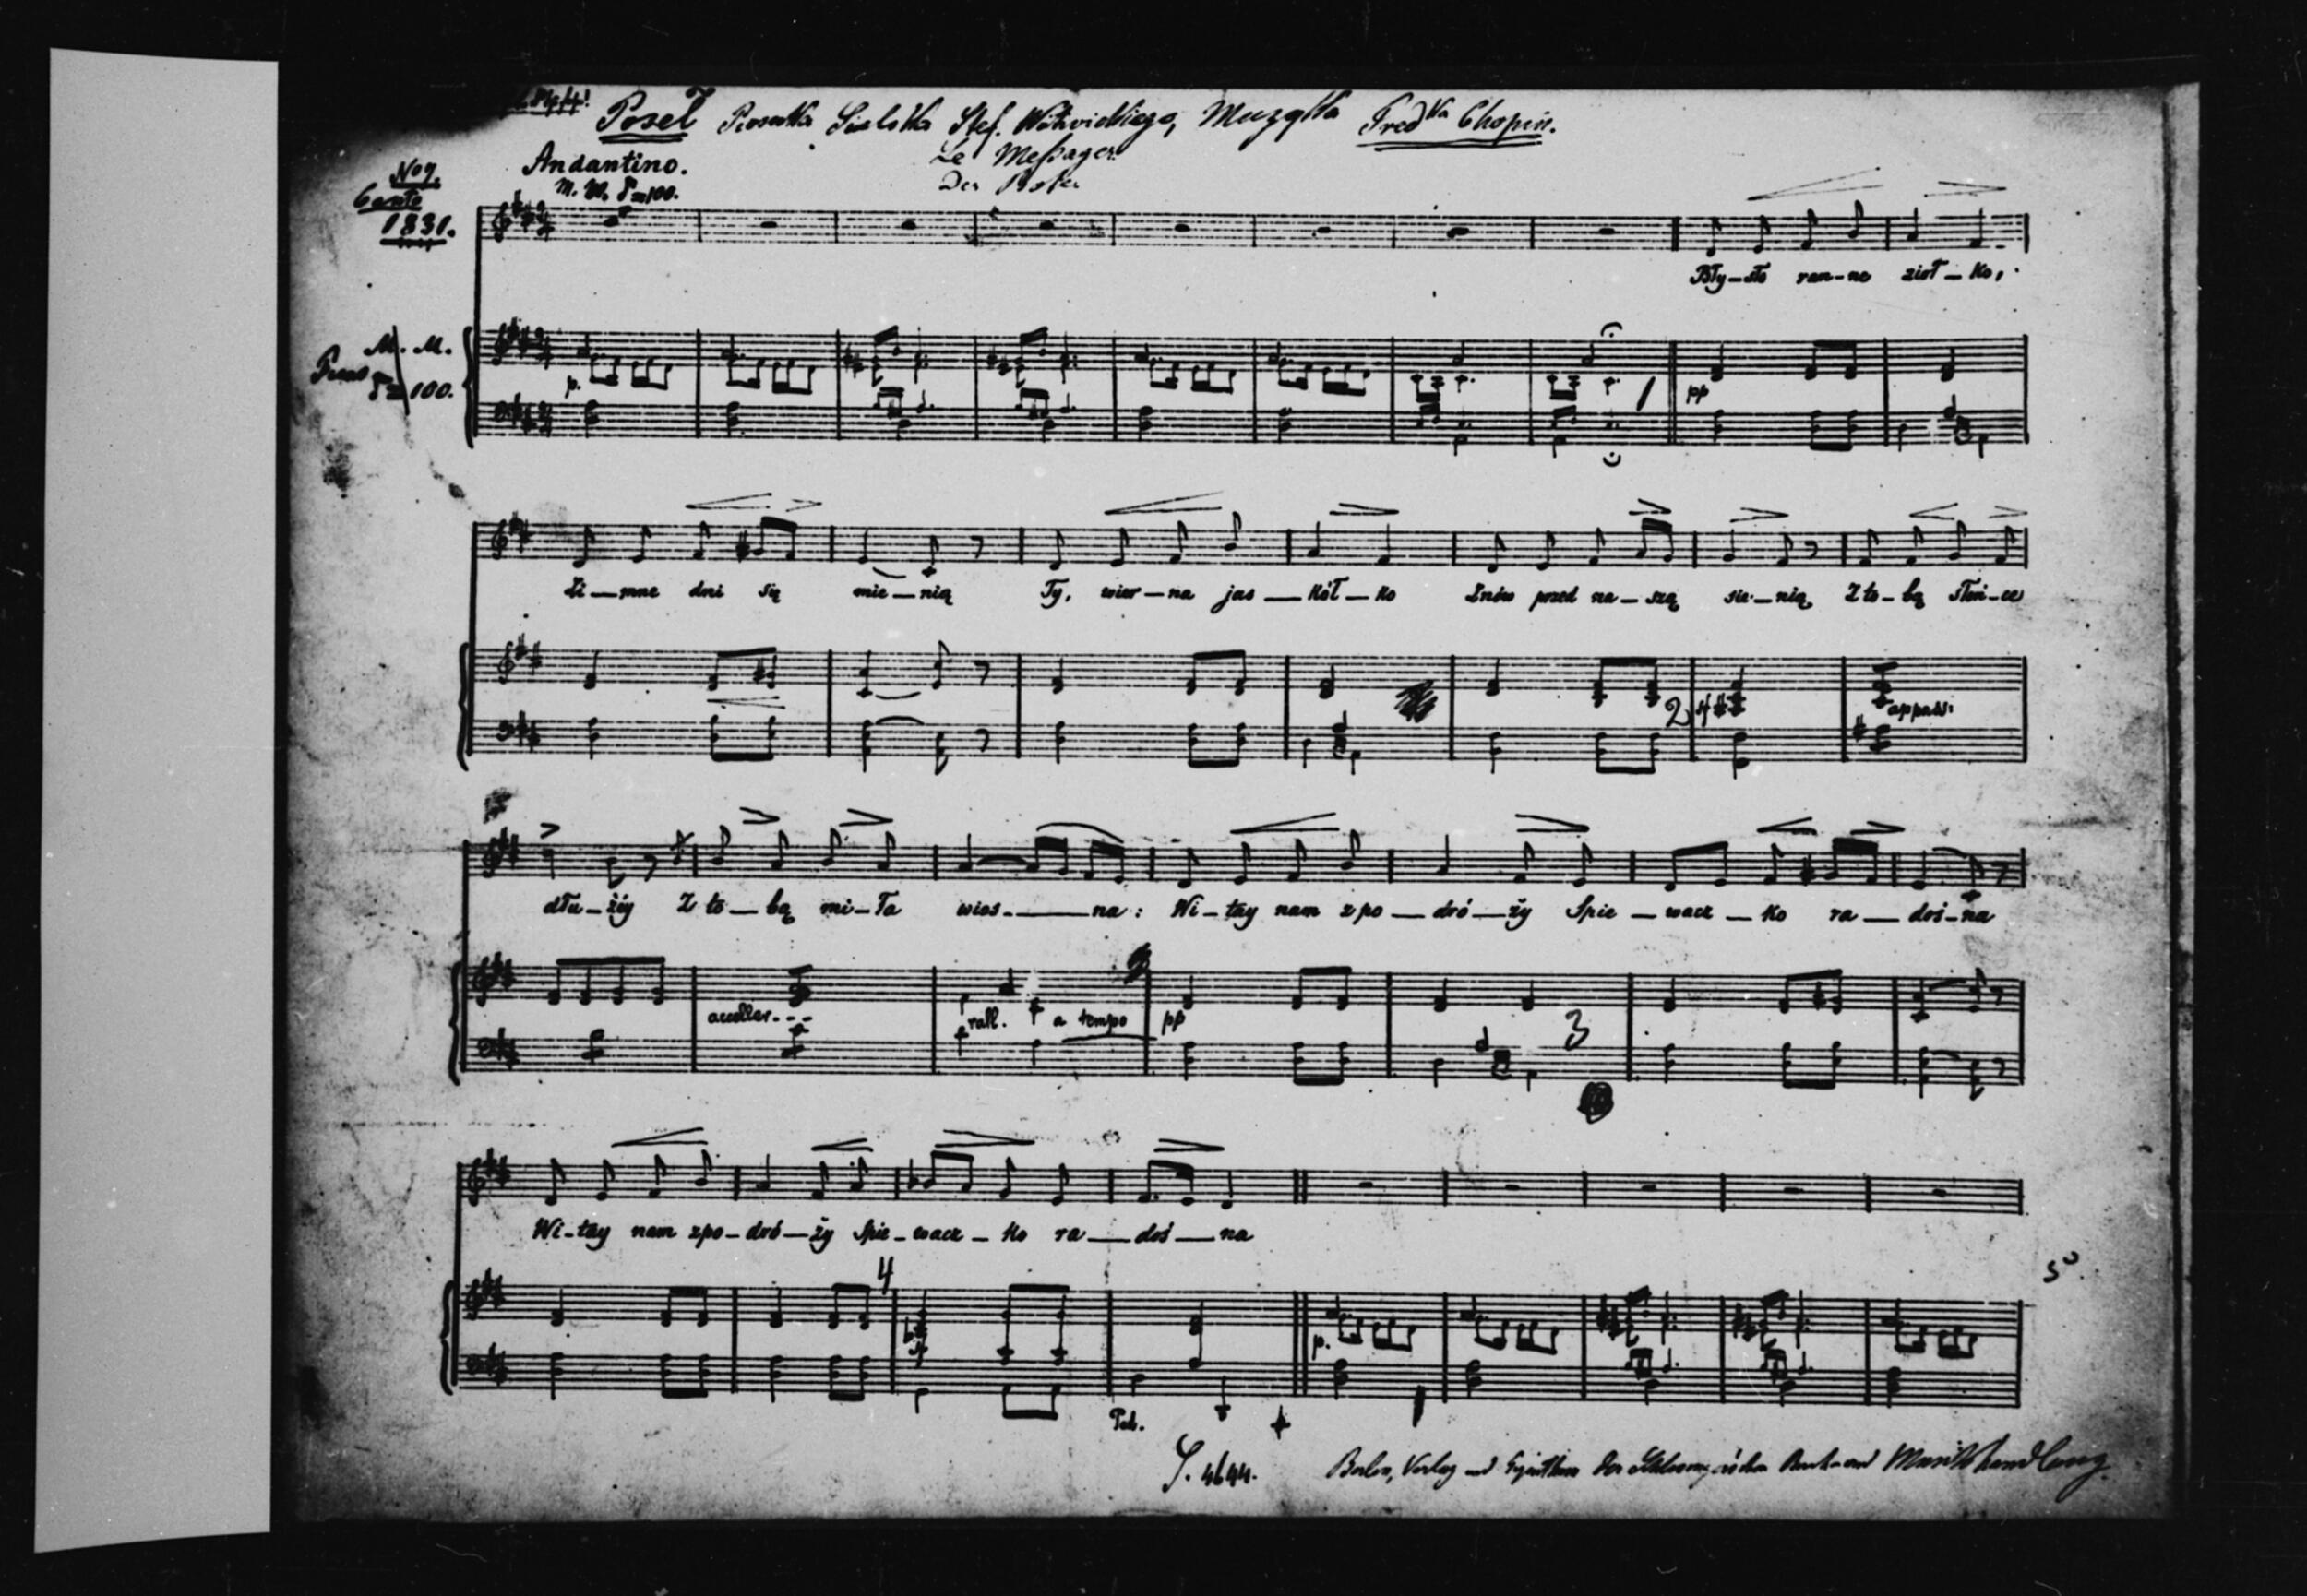 Poseł Piosnka Sielska Stef. Witwickiego, Muzyka Fredka Chopin.
Le Messager
Der Bote
No 7. Andantino.
Canto M. M. =100.
1831.
Bły-sło ran-ne zioł-ko,
Piano M. M. = 100.
p. pp
1
Zi-mne dni się mie-nią Ty, wier-na jas-kół-ko Znów przed na-szą sie-nią Z to-bą słoń-ce
2 appass:
dłu-żéy Z to-bą mi-ła wios-na: Wi-tay nam z po-dró-ży Spie-wacz-ko ra-doś-na
acceller--- rall. a tempo pp
3
Wi-tay nam z po-dró-ży Spie-wacz-ko ra-doś-na
4
5
p.
Ped.
S. 4644. Berlin, Verlag und Eigenthum der Schlesinger'schen Buch- und Musikhandlung.